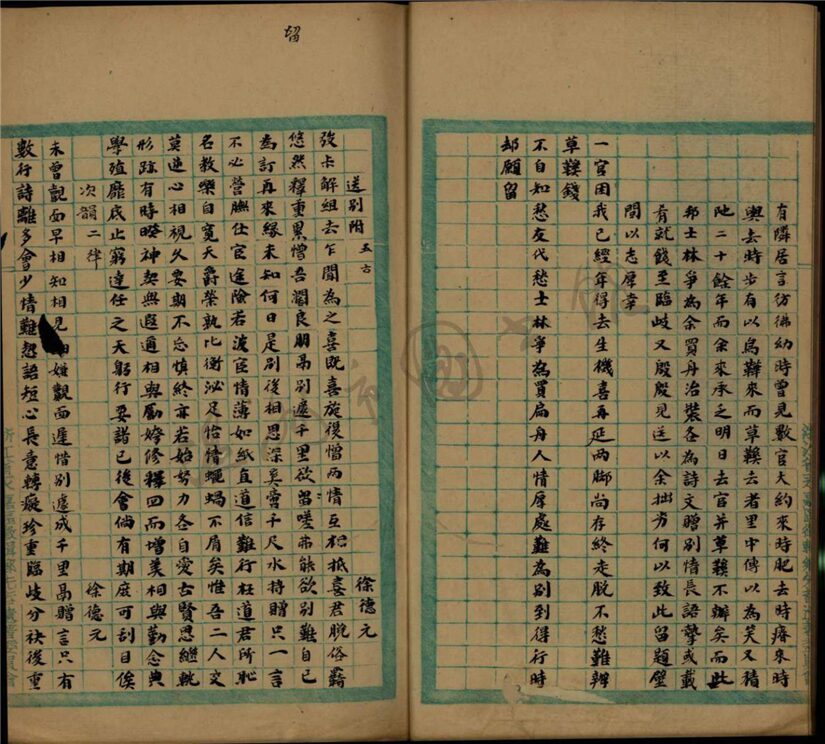 有隣居言彷彿幼時曾見數官大約來時肥去時瘠來時
輿去時步有以烏鞾來而草鞵去者里中傳以為笑又積
阤二十餘年而余來承之明日去官并草鞵不辦矣而此
邦士林爭為余買舟冶裝各為詩文贈別情長語摯或載
肴就餞至臨岐又殷殷見送以余拙劣何以致此留題壁
間以志厚幸
一官困我已經年得去生機喜再延兩脚尚存終走脫不愁難辨
草鞵錢
不自知愁友代愁士林爭為買扁舟人情厚處難為別到得行時
却願留
留
送別附五古 徐德元
發卡解組去乍聞為之喜既喜旋復憎兩情互相抵喜君脫俗羈
悠然釋重累憎吾闊良朋鬲別遽千里欲留嗟弗能欲別難自已
為訂再來緣未知何日是別後相思深奚啻千尺水持贈只一言
不必營膴仕宦途險若波臣情薄如紙直道信難行枉道君所恥
名教樂自寬天爵榮孰比衡泌足怡情蠅蝸不屑矣惟吾二人交
莫逆心相視久要期不忘慎終亦若始努力各自愛古賢思繼軌
形踪有時暌神契無遐邇相與勵姱修釋回而增美相與勤念典
學殖靡底止窮達任之天躬行要諸己後會倘有期庶可刮目俟
次韻二律 徐德元
未曾覿面早相知相見嫌覿面遲惜別遽成千里鬲贈言只有
數行詩離多會少情難恝語短心長意轉癡珍重臨歧分袂後重